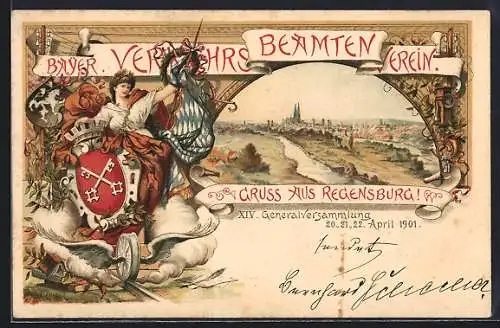 BAYER. VERKEHRS BEAMTEN VEREIN.
GRUSS AUS REGENSBURG!
XIV. Generalversammlung
20. 21. 22. April 1901.
sendet
Bernhard